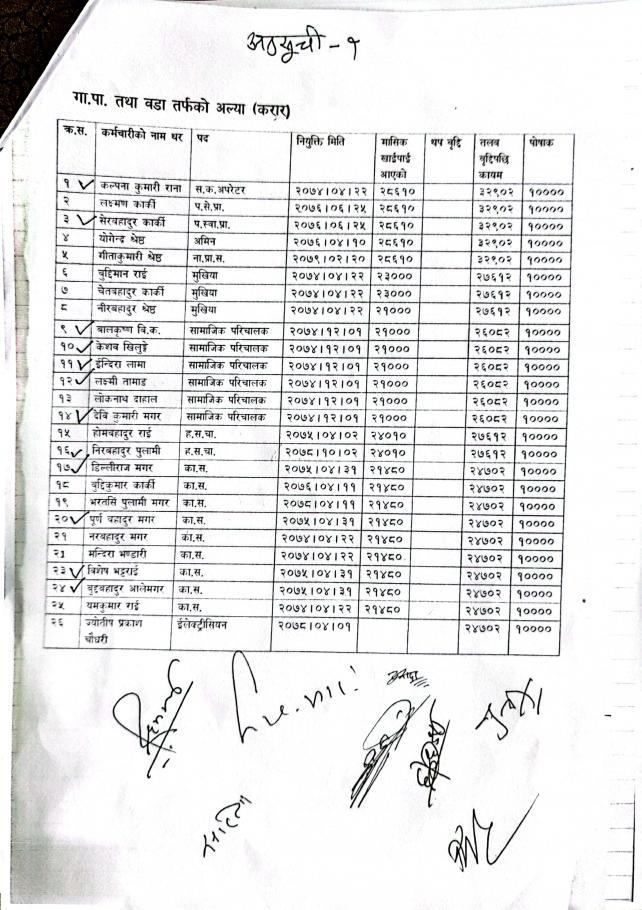 अनुसूची - १
गा.पा. तथा वडा तर्फको अल्या (करार)
क्र.स. कर्मचारीको नाम थर पद नियुक्ति मिति मासिक खाईपाई आएको थप वृद्दि तलब वृद्दिपछि कायम पोषाक
१ कल्पना कुमारी राना स.क.अपरेटर २०७४।०४।२२ २८६१० ३२९०२ १००००
२ लक्ष्मण कार्की प.से.प्रा. २०७६।०६।२५ २८६१० ३२९०२ १००००
३ सेरबहादुर कार्की प.स्वा.प्रा. २०७६।०६।२५ २८६१० ३२९०२ १००००
४ योगेन्द्र श्रेष्ठ अमिन २०७६।०४।१० २८६१० ३२९०२ १००००
५ गीताकुमारी श्रेष्ठ ना.प्रा.स. २०७९।०२।२० २८६१० ३२९०२ १००००
६ बुद्दिमान राई मुखिया २०७४।०४।२२ २३००० २७६१२ १००००
७ चेतबहादुर कार्की मुखिया २०७४।०४।२२ २३००० २७६१२ १००००
८ नीरबहादुर श्रेष्ठ मुखिया २०७४।०४।२२ २१००० २७६१२ १००००
९ बालकृष्ण बि.क. सामाजिक परिचालक २०७४।१२।०१ २१००० २६०८२ १००००
१० केशब खिलुङ्गे सामाजिक परिचालक २०७४।१२।०१ २१००० २६०८२ १००००
११ ईन्दिरा लामा सामाजिक परिचालक २०७४।१२।०१ २१००० २६०८२ १००००
१२ लक्ष्मी तामाङ सामाजिक परिचालक २०७४।१२।०१ २१००० २६०८२ १००००
१३ लोकनाथ दाहाल सामाजिक परिचालक २०७४।१२।०१ २१००० २६०८२ १००००
१४ देबि कुमारी मगर सामाजिक परिचालक २०७४।१२।०१ २१००० २६०८२ १००००
१५ होमबहादुर राई ह.स.चा. २०७५।०४।०२ २४०१० २७६१२ १००००
१६ निरबहादुर पुलामी ह.स.चा. २०७८।१०।०२ २४०१० २७६१२ १००००
१७ डिल्लीराज मगर का.स. २०७५।०४।३१ २१४८० २४७०२ १००००
१८ बुद्दिकुमार कार्की का.स. २०७६।०४।११ २१४८० २४७०२ १००००
१९ भरतसिं पुलामी मगर का.स. २०७८।०४।११ २१४८० २४७०२ १००००
२० पूर्ण बहादुर मगर का.स. २०७५।०४।३१ २१४८० २४७०२ १००००
२१ नरबहादुर मगर का.स. २०७४।०४।२२ २१४८० २४७०२ १००००
२३ मन्दिरा भण्डारी का.स. २०७४।०४।२२ २१४८० २४७०२ १००००
२३ बिशेष भट्टराई का.स. २०७५।०४।३१ २१४८० २४७०२ १००००
२४ बुद्दबहादुर आलेमगर का.स. २०७५।०४।३१ २१४८० २४७०२ १००००
२५ यमकुमार राई का.स. २०७४।०४।२२ २१४८० २४७०२ १००००
२६ ज्योतीष प्रकाश चौधरी ईलेक्ट्रीसियन २०७८।०४।०१ २४७०२ १००००